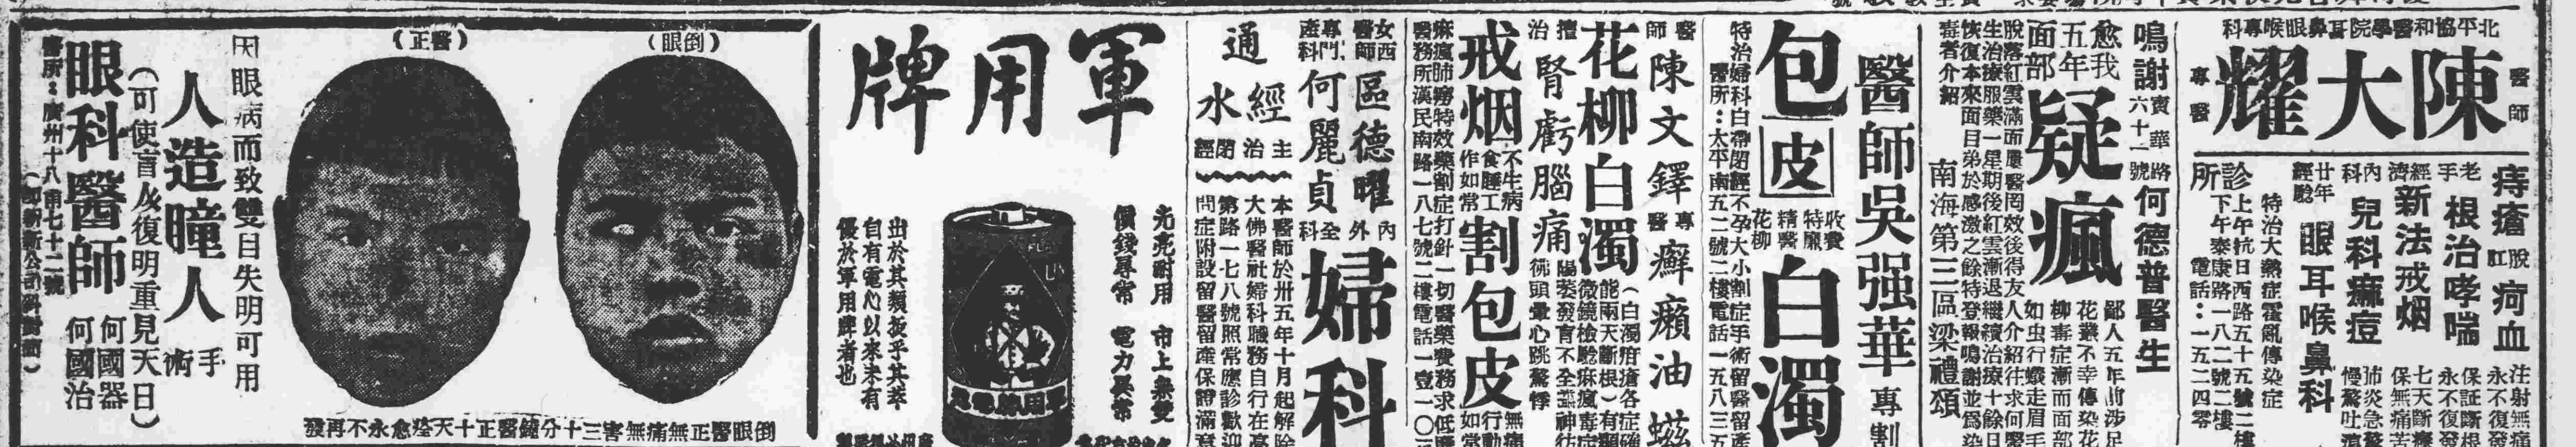 北平協和醫學院耳鼻眼喉專科
醫師
陳大耀
專醫
痔瘡
脫肛
疴血
老手
根治哮喘
經濟
新法戒烟
內科
兒科痲痘
廿年經驗
眼耳喉鼻科
特治大熱症霍亂傳染症
診所
上午抗日西路五十五號二樓
下午泰康路一八二號二樓
電話：一五二四零
鳴謝
寶華路
六十一號
何德普醫生
愈我五年面部
疑瘋
鄙人五年前涉足
花叢不幸傳染花
柳毒症漸而面部
如虫行蟻走眉毛
脫落紅雲滿面屢醫罔效後得友人介紹往求何醫
生治療服藥一星期後紅雲漸退繼續治療十餘日
恢復本來面目弟於感激之餘特登報鳴謝並為染
毒者介紹
南海第三區梁禮頌
醫師吳强華
專割
包皮
收費特廉
精醫花柳
白濁
特治婦科白帶閉經不孕大小割症手術留醫留產
醫所：太平南五二號二樓電話一五八三五
醫師
陳文鐸
專醫
癬癩油
花柳白濁
擅治
腎虧腦痛
戒烟
不生病
食睡工
作如常
割包皮
無痛
行動
如常
痲瘋肺癆特效藥割症打針一切醫藥費務求低廉
醫務所漢民南路一八七號二樓電話一壹一〇三
女西醫師
區德曜
內外
專門產科
何麗貞
全科
婦科
通經水
主治閉經
本醫師於卅五年十月起解除
大佛醫社婦科職務自行在
第路一七八號照常應診歡迎
問症附設留醫留產保證滿意
軍用牌
光亮耐用 市上無雙
價錢尋常 電力異常
出於其類拔乎其萃
自有電心以來未有
優於軍用牌者也
（倒眼）
（醫正）
倒眼醫正無痛無害三十分鐘醫正十天痊愈永不再發
因眼病而致雙目失明可用
人造瞳人
手術
（可使盲人復明重見天日）
眼科醫師
何國器
何國治
醫所：廣州十八甫七十二號